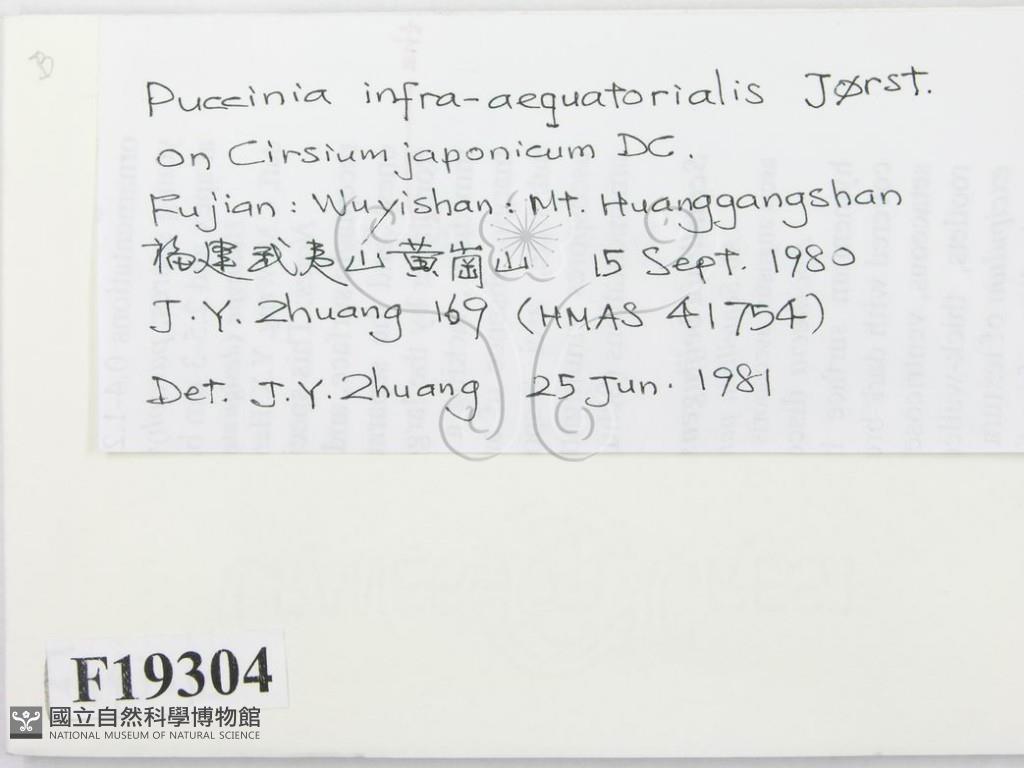 B
Puccinia infra-aequatorialis Jørst.
on Cirsium japonicum DC.
Fujian: Wuyishan: Mt. Huanggangshan
福建武夷山黄崗山 15 Sept. 1980
J.Y. Zhuang 169 (HMAS 41754)
Det. J.Y. Zhuang 25 Jun. 1981
F19304
國立自然科學博物館
NATIONAL MUSEUM OF NATURAL SCIENCE